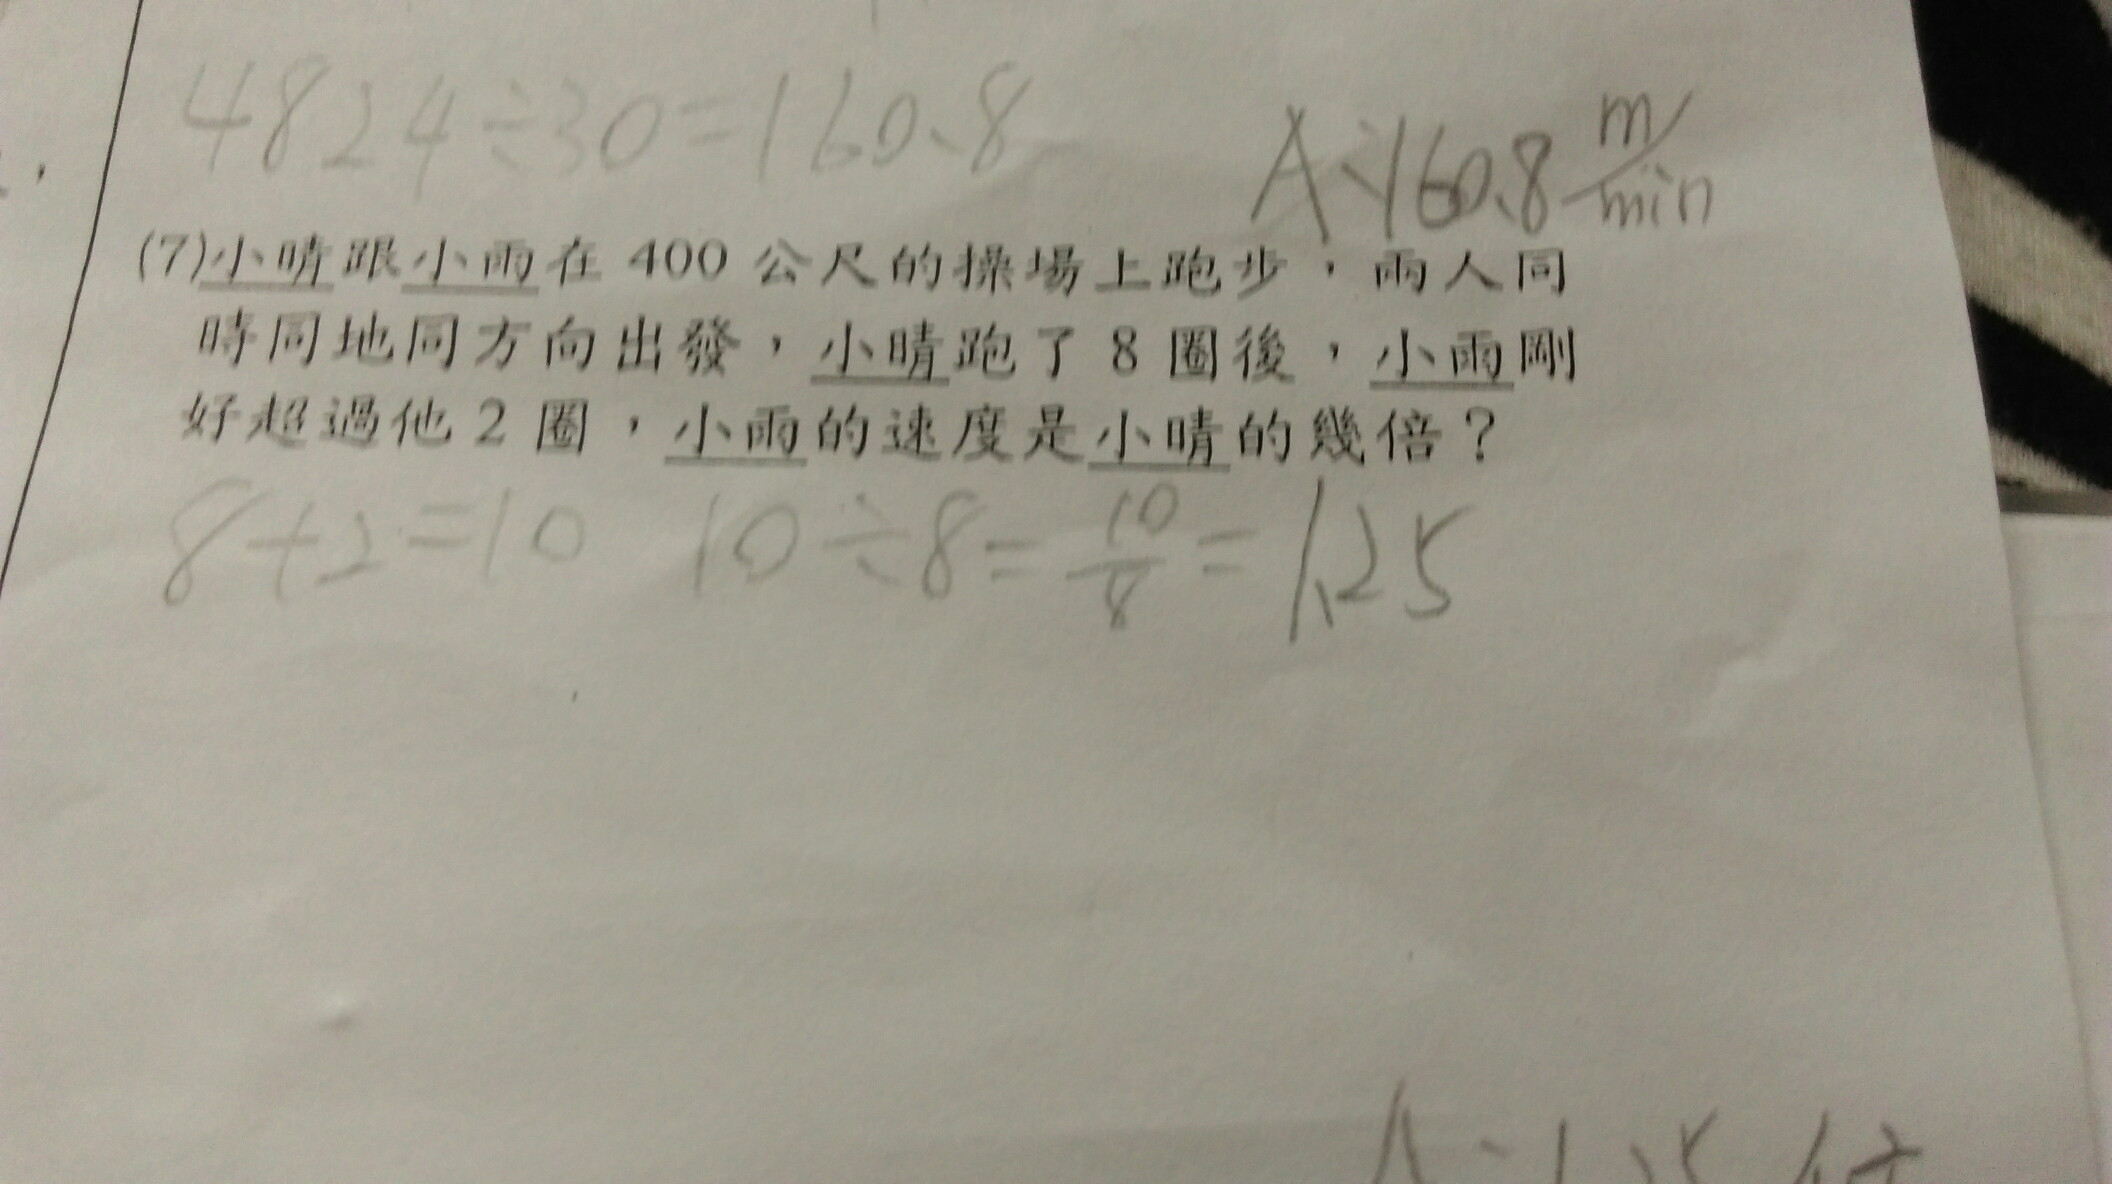 4824÷30=160.8
A:160.8 m/min
(7)小晴跟小雨在 400 公尺的操場上跑步，兩人同
時同地同方向出發，小晴跑了 8 圈後，小雨剛
好超過他 2 圈，小雨的速度是小晴的幾倍？
8+2=10 10÷8=10/8=1.25